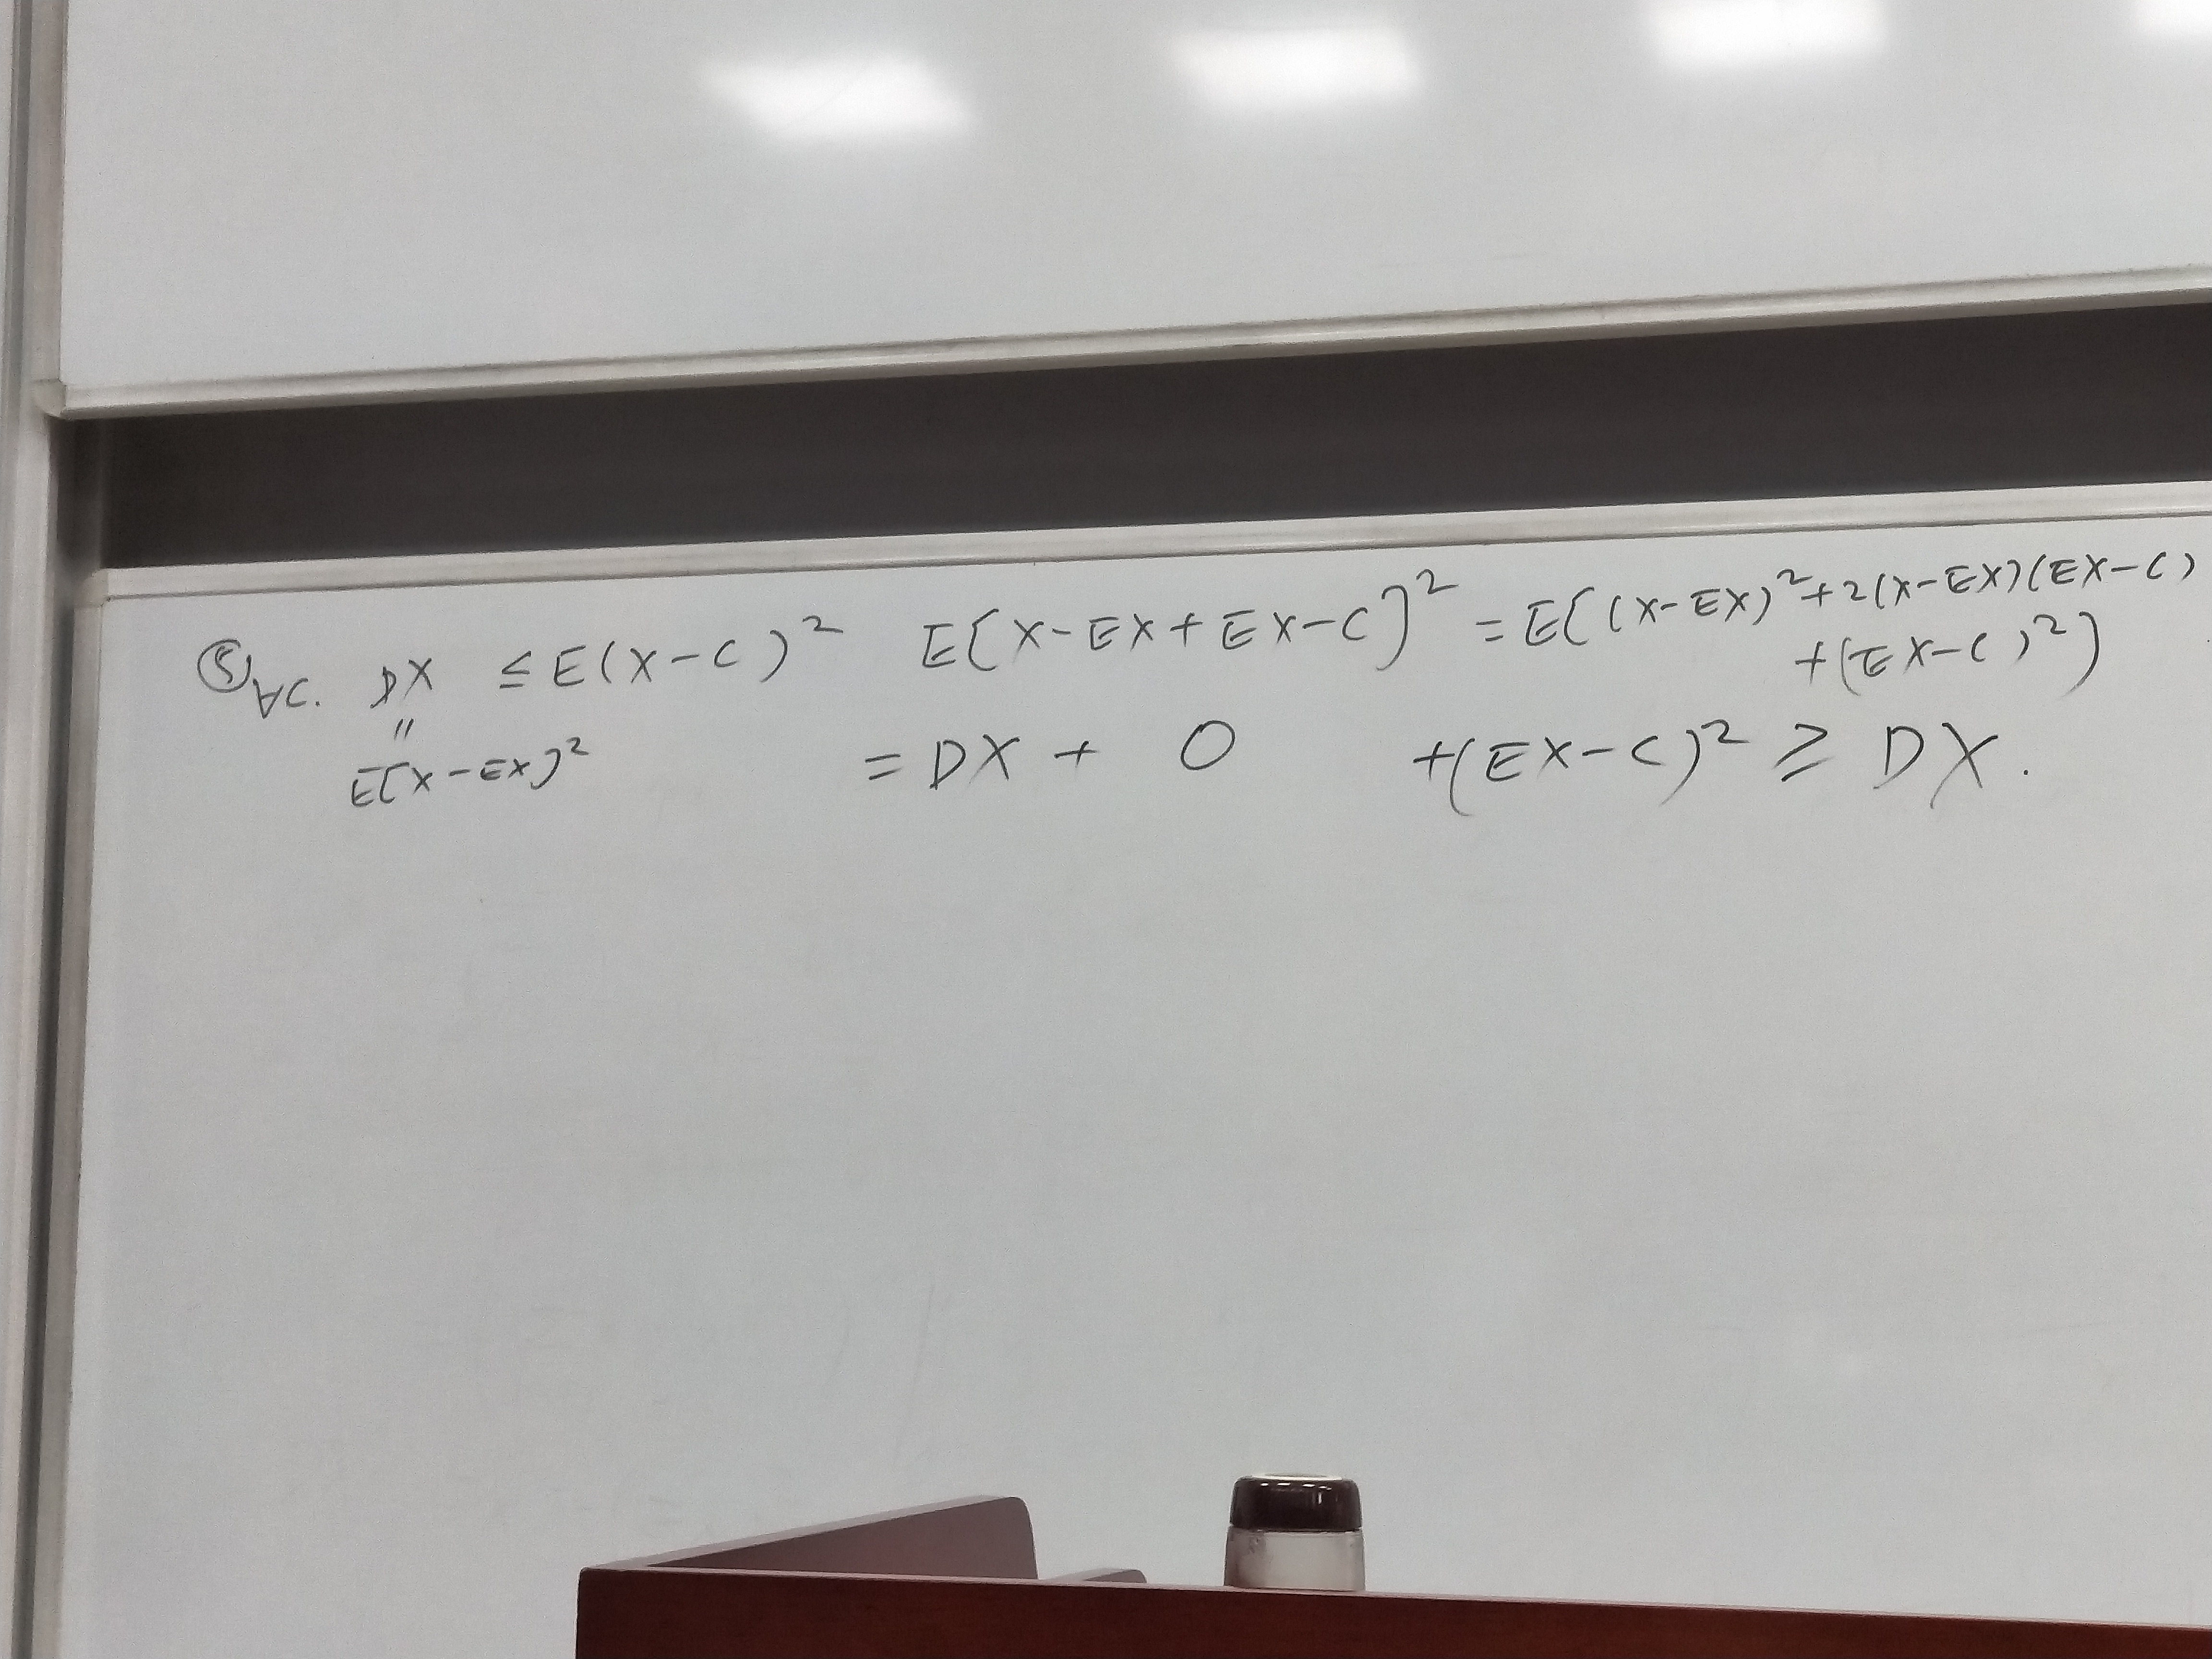 ⑤ ∀C. DX ≤ E(X-C)² E[X-EX+EX-C]² = E[(X-EX)²+2(X-EX)(EX-C)
+(EX-C)²]
"
E[X-EX]² = DX + 0 +(EX-C)² ≥ DX.